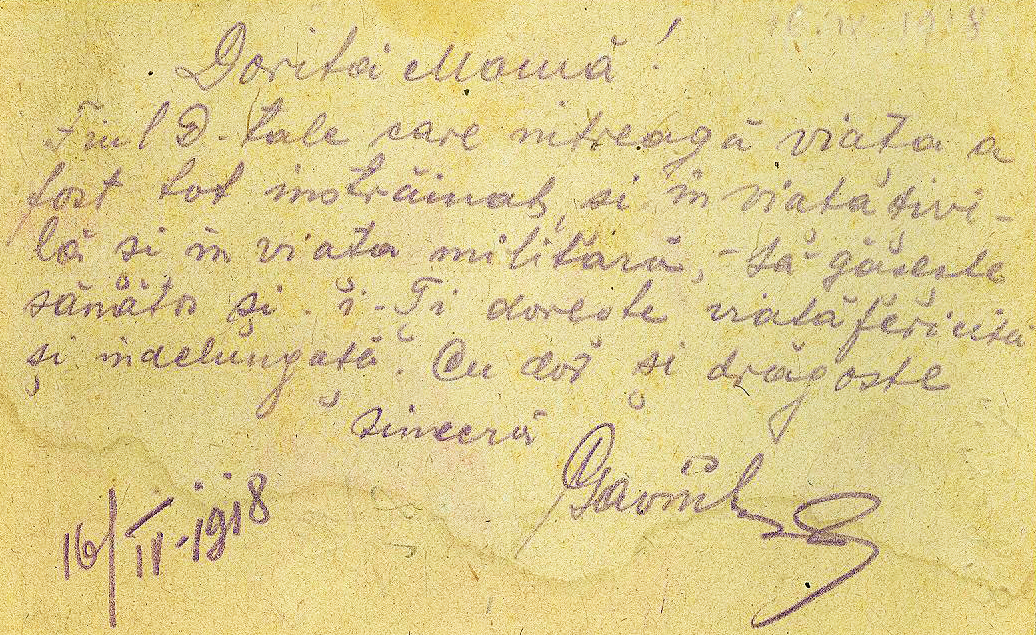 16.IV.1918
Dorită Mamă!
Fiul D-tale care întreagă viața a
fost tot instrăinat, si în viată tivi-
lă si in viata militară, - tă găseste
sănătos și. i-Ti doreste viată fericita
și indelungată. Cu dor și drăgoste
sinceră
Gavril
16/IV-1918